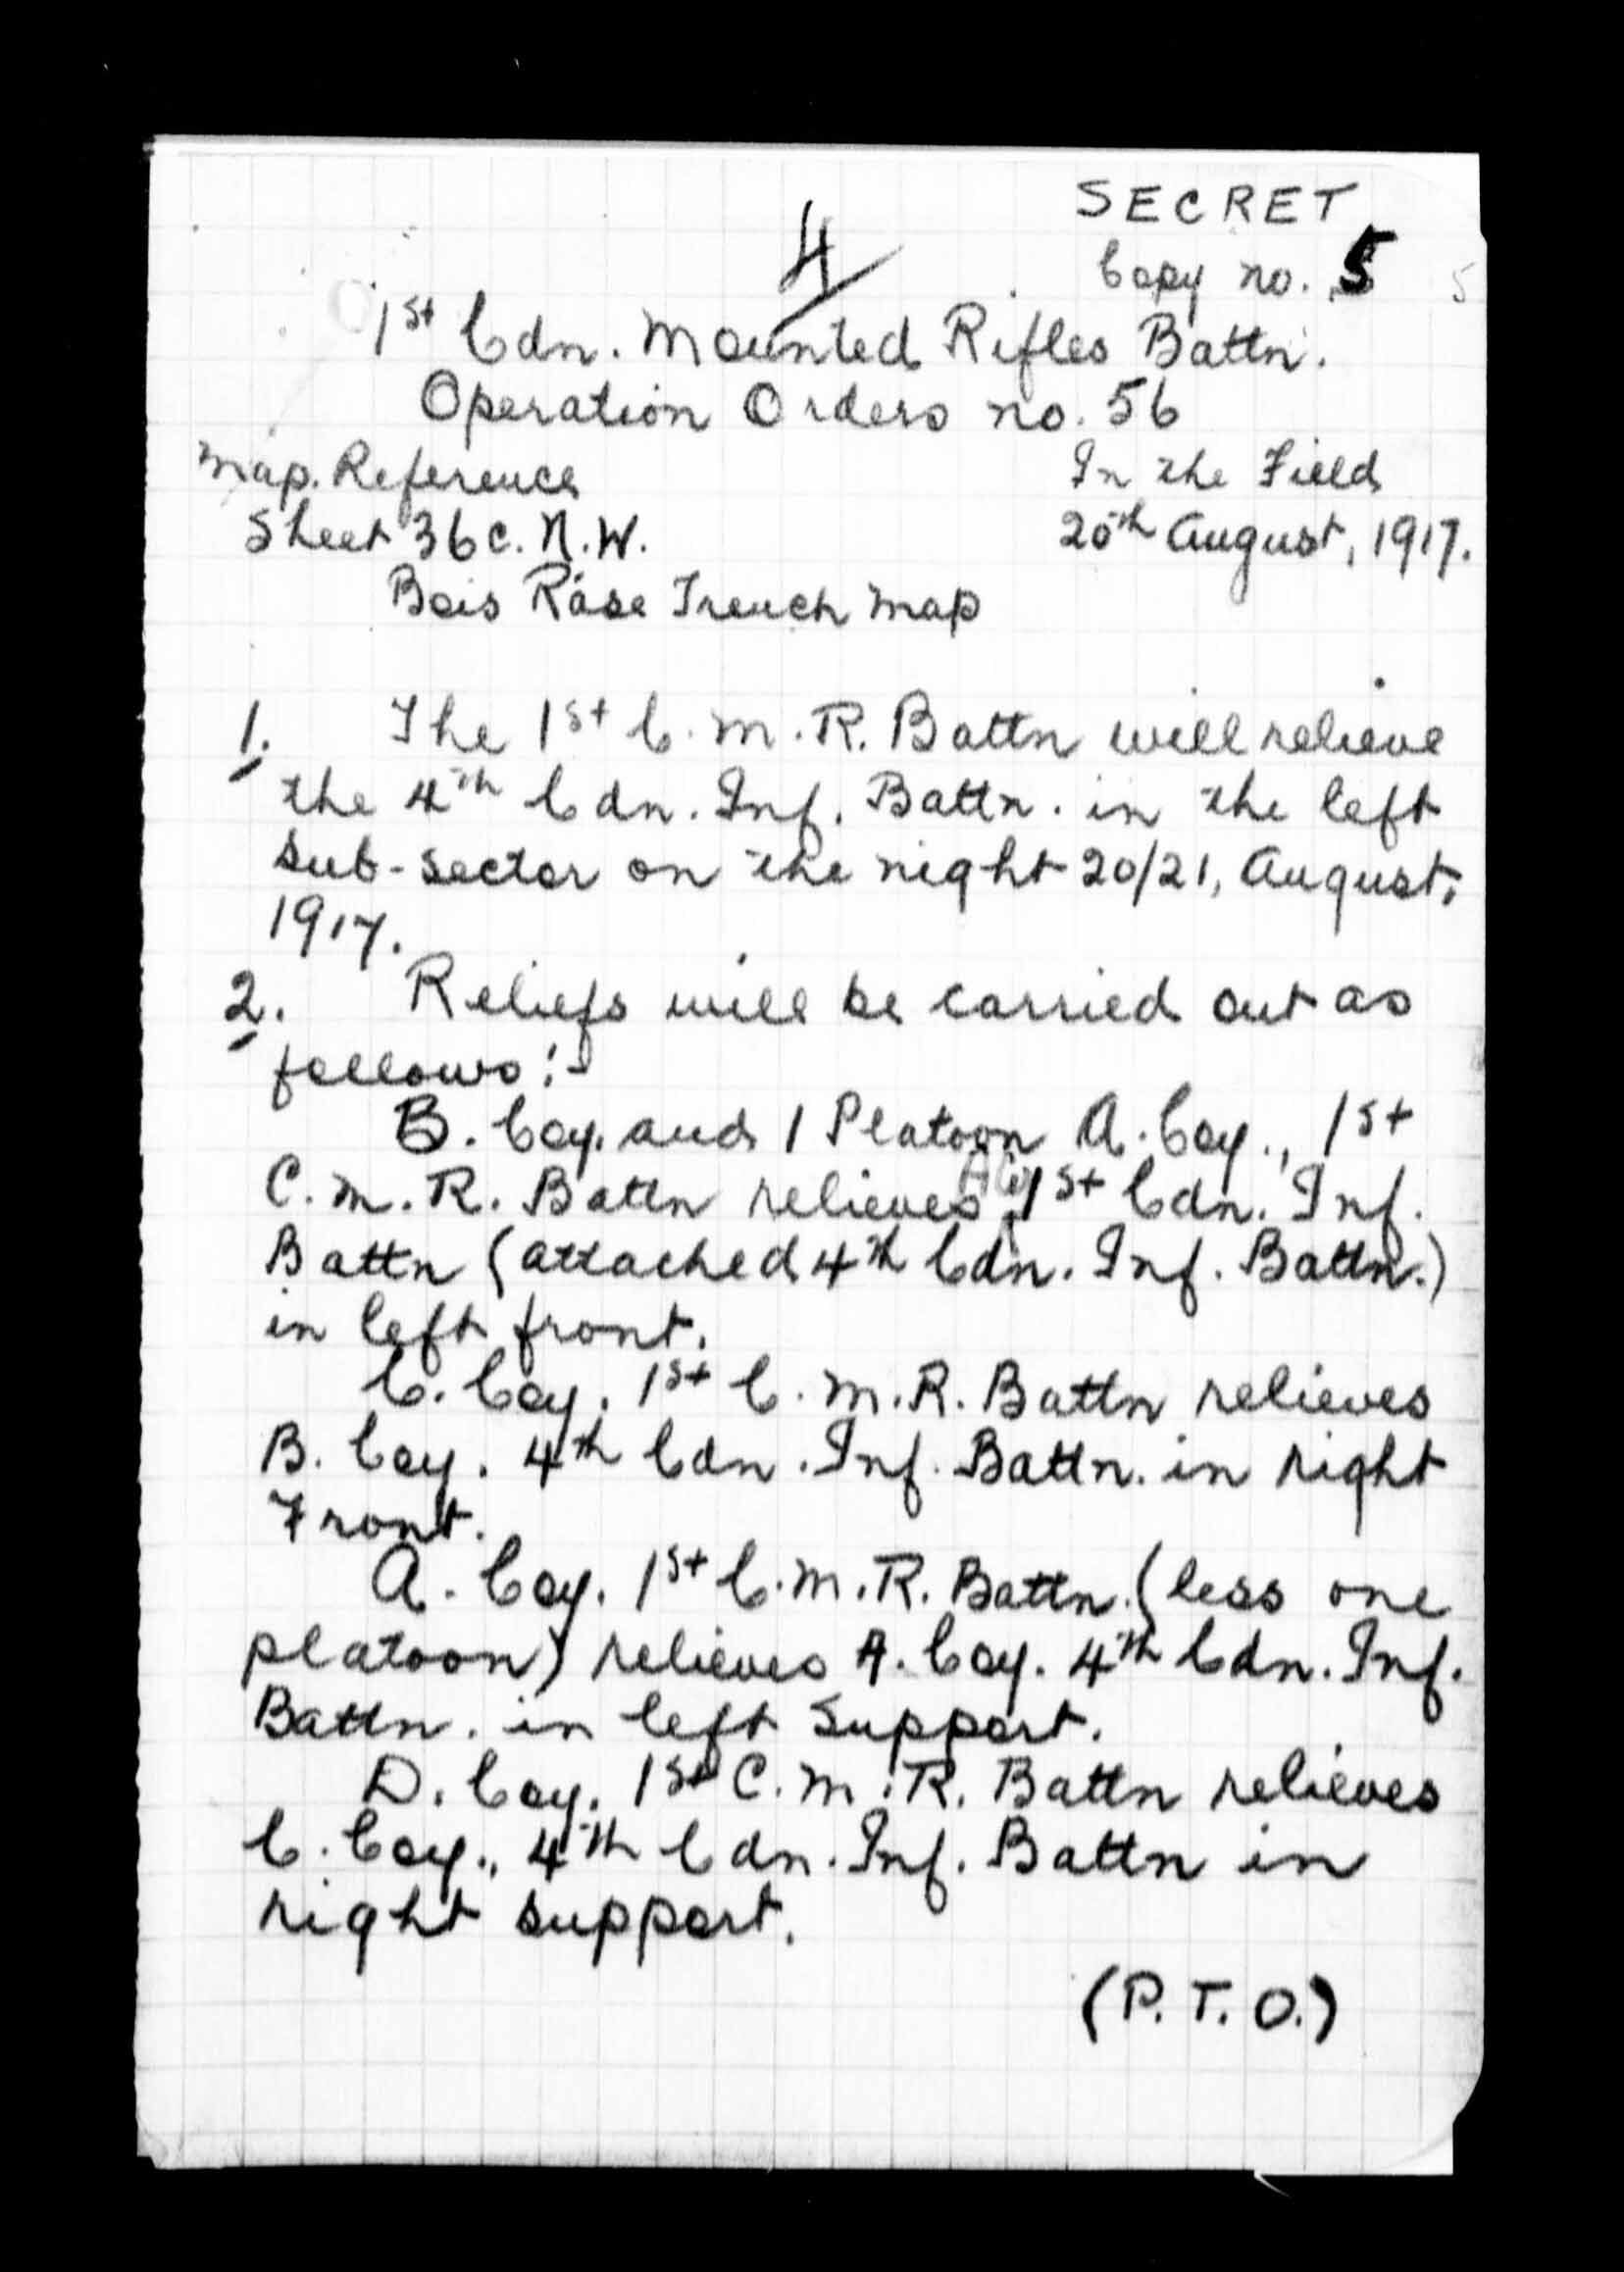 SECRET
4
Copy no. 5
5
1st Cdn. Mounted Rifles Battn.
Operation Orders no. 56
Map. Reference
In the Field
Sheet 36c. N.W.
20th August, 1917.
Bois Rase Trench Map
1. The 1st C.M.R. Battn will relieve
the 4th Cdn. Inf. Battn. in the left
sub-sector on the night 20/21, August,
1917.
2. Reliefs will be carried out as
follows:-
B. Coy. and 1 Platoon A. Coy., 1st
A Coy
C.M.R. Battn relieves 1st Cdn. Inf.
Battn (attached 4th Cdn. Inf. Battn.)
in left front.
C. Coy. 1st C.M.R. Battn relieves
B. Coy. 4th Cdn. Inf. Battn. in right
Front.
A. Coy. 1st C.M.R. Battn. (less one
platoon) relieves A. Coy. 4th Cdn. Inf.
Battn. in left Support.
D. Coy. 1st C.M.R. Battn relieves
C. Coy., 4th Cdn. Inf. Battn in
right support.
(P.T.O.)